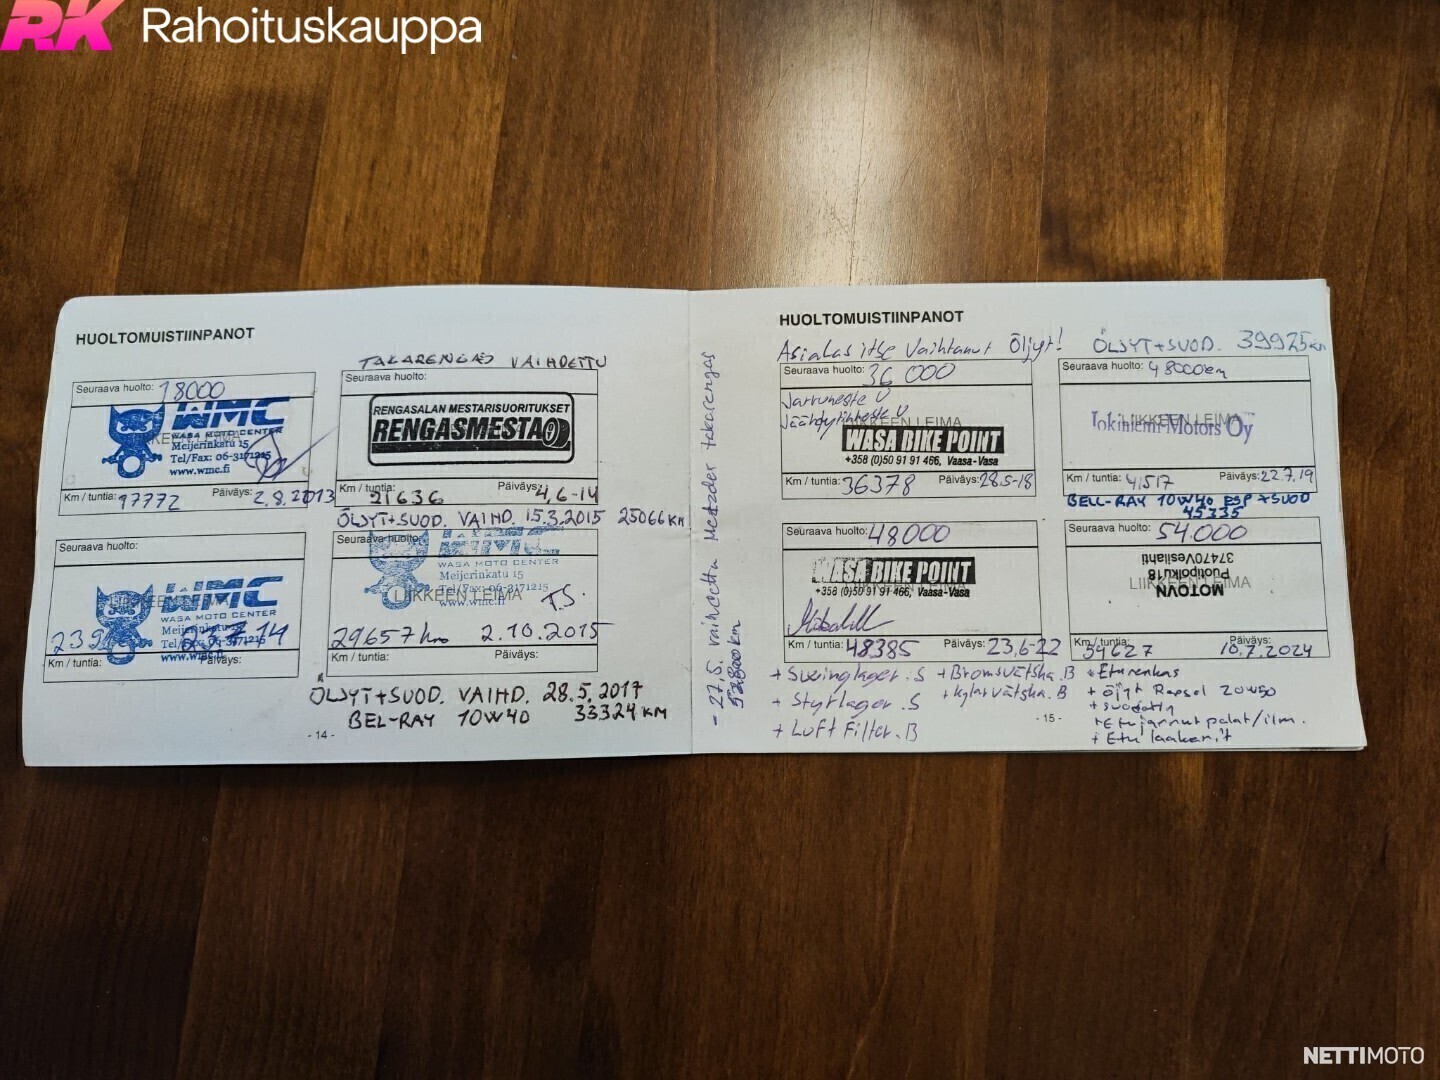 RK Rahoituskauppa
HUOLTOMUISTIINPANOT
TAKARENGAS VAIHDETTU
Seuraava huolto: 18000
WMC
WASA MOTO CENTER
Meijerinkatu 15
Tel/Fax: 06-3171215
www.wmc.fi
Km / tuntia: 17772 Päiväys: 2.8.2013
Seuraava huolto:
RENGASALAN MESTARISUORITUKSET
RENGASMESTA
Km / tuntia: 21636 Päiväys: 4.6-14
ÖLJYT+SUOD. VAIHD. 15.3.2015 25066 KM
Seuraava huolto:
WMC
WASA MOTO CENTER
Meijerinkatu 15
www.wmc.fi
Km / tuntia: Päiväys:
Seuraava huolto:
WMC
WASA MOTO CENTER
Meijerinkatu 15
Tel/Fax: 06-3171215
LIIKKEEN LEIMA
www.wmc.fi
T.S.
29657 km 2.10.2015
Km / tuntia: Päiväys:
ÖLJYT+SUOD. VAIHD. 28.5.2017
BEL-RAY 10W40 33324 KM
- 14 -
- 27.5. vaihdettu Metzeler takarengas
52800 km
HUOLTOMUISTIINPANOT
Asiakas itse Vaihtanut Öljyt!
Seuraava huolto: 36 000
Jarruneste U
Jäähdytinneste U
LIIKKEEN LEIMA
WASA BIKE POINT
+358 (0)50 91 91 466, Vaasa-Vasa
Km / tuntia: 36378 Päiväys: 28.5-18
ÖLJYT+SUOD. 39925 km
Seuraava huolto: 48000km
LIIKKEEN LEIMA
Jokiniemi Motors Oy
Km / tuntia: 41517 Päiväys: 22.7.19
BELL-RAY 10W40 ESP +SUOD
45335
Seuraava huolto: 48000
WASA BIKE POINT
+358 (0)50 91 91 466, Vaasa-Vasa
Km / tuntia: 48385 Päiväys: 23.6-22
+ Svinglager. S + Bromsvätska. B
+ Styrlager. S + Kylarvätska. B
+ Luft Filter. B
Seuraava huolto: 54000
MOTOVN
Puotipolku18
37470Vesilahti
LIIKKEEN LEIMA
Km / tuntia: 54627 Päiväys: 10.7.2024
+ Eturenkas
+ Öljyt Repsol 20W50
+ suodatin
+ Etujarrut palat/ilm.
+ Etu laakerit
- 15 -
NETTIMOTO